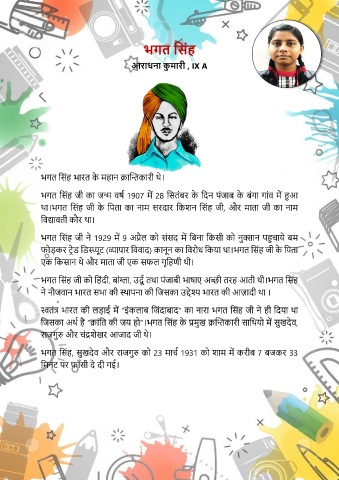 भगत सिंह
आराधना कुमारी , IX A
भगत सिंह भारत के महान क्रान्तिकारी थे।
भगत सिंह जी का जन्म वर्ष 1907 में 28 सितंबर के दिन पंजाब के बंगा गांव में हुआ
था।भगत सिंह जी के पिता का नाम सरदार किशन सिंह जी, और माता जी का नाम
विद्यावती कौर था।
भगत सिंह जी ने 1929 में 9 अप्रेल को संसद में बिना किसी को नुक्सान पहुचाये बम
फोड़कर ट्रेड डिस्प्यूट (व्यापार विवाद) कानून का विरोध किया था।भगत सिंह जी के पिता
एक किसान थे और माता जी एक सफल गृहिणी थी।
भगत सिंह जी को हिंदी, बांग्ला, उर्दू तथा पंजाबी भाषाए अच्छी तरह आती थी।भगत सिंह
ने नौजवान भारत सभा की स्थापना की जिसका उद्देश्य भारत की आज़ादी था ।
स्वतंत्र भारत की लड़ाई में "इंकलाब जिंदाबाद" का नारा भगत सिंह जी ने ही दिया था
जिसका अर्थ है "क्रांति की जय हो"।भगत सिंह के प्रमुख क्रान्तिकारी साथियो में सुखदेव,
राजगुरु और चंद्रशेखर आजाद जी थे।
भगत सिंह, सुखदेव और राजगुरु को 23 मार्च 1931 को शाम में करीब 7 बजकर 33
मिनट पर फाँसी दे दी गई।